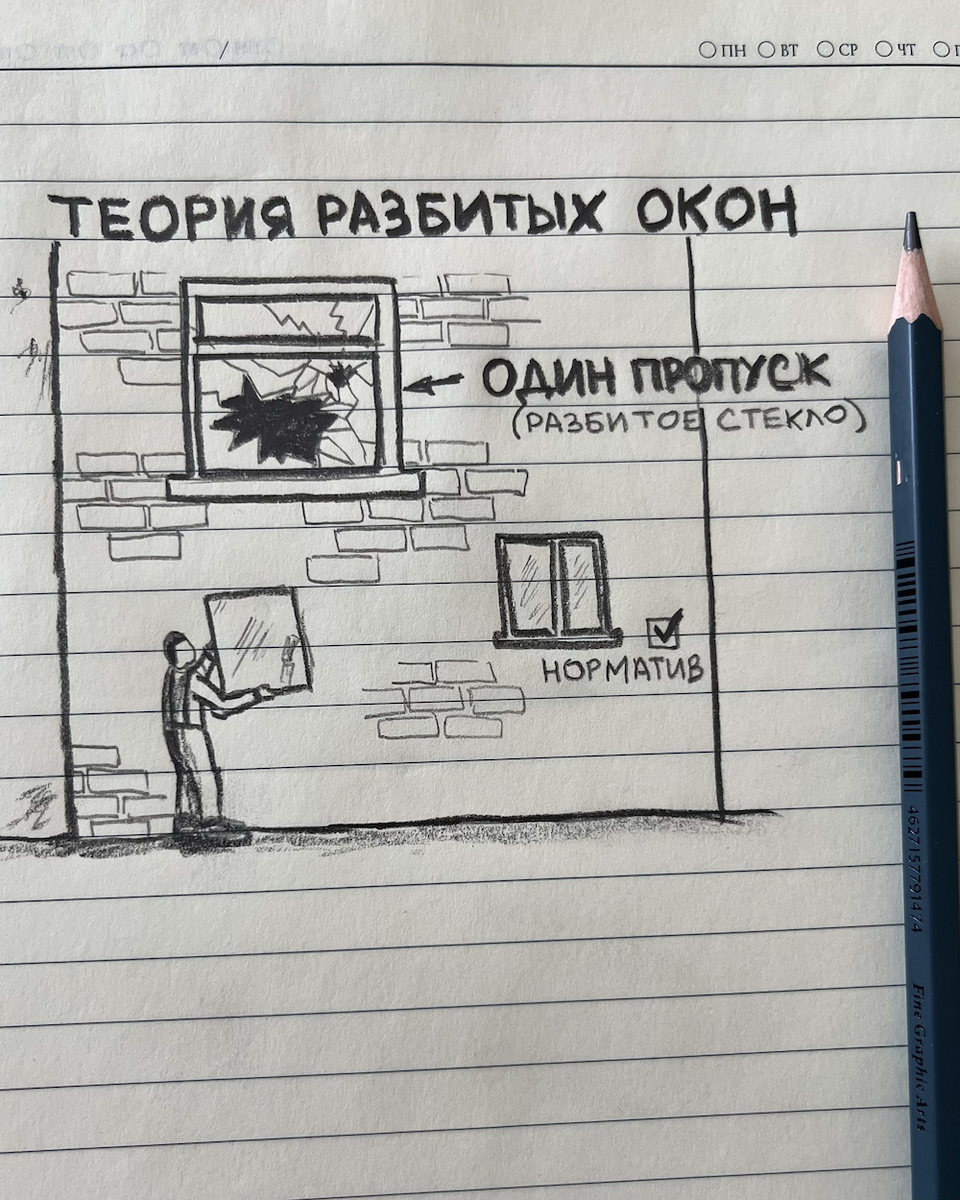 ПН ВТ СР ЧТ
ТЕОРИЯ РАЗБИТЫХ ОКОН
ОДИН ПРОПУСК
(РАЗБИТОЕ СТЕКЛО)
НОРМАТИВ
4627157791474
Fine Graphic Arts